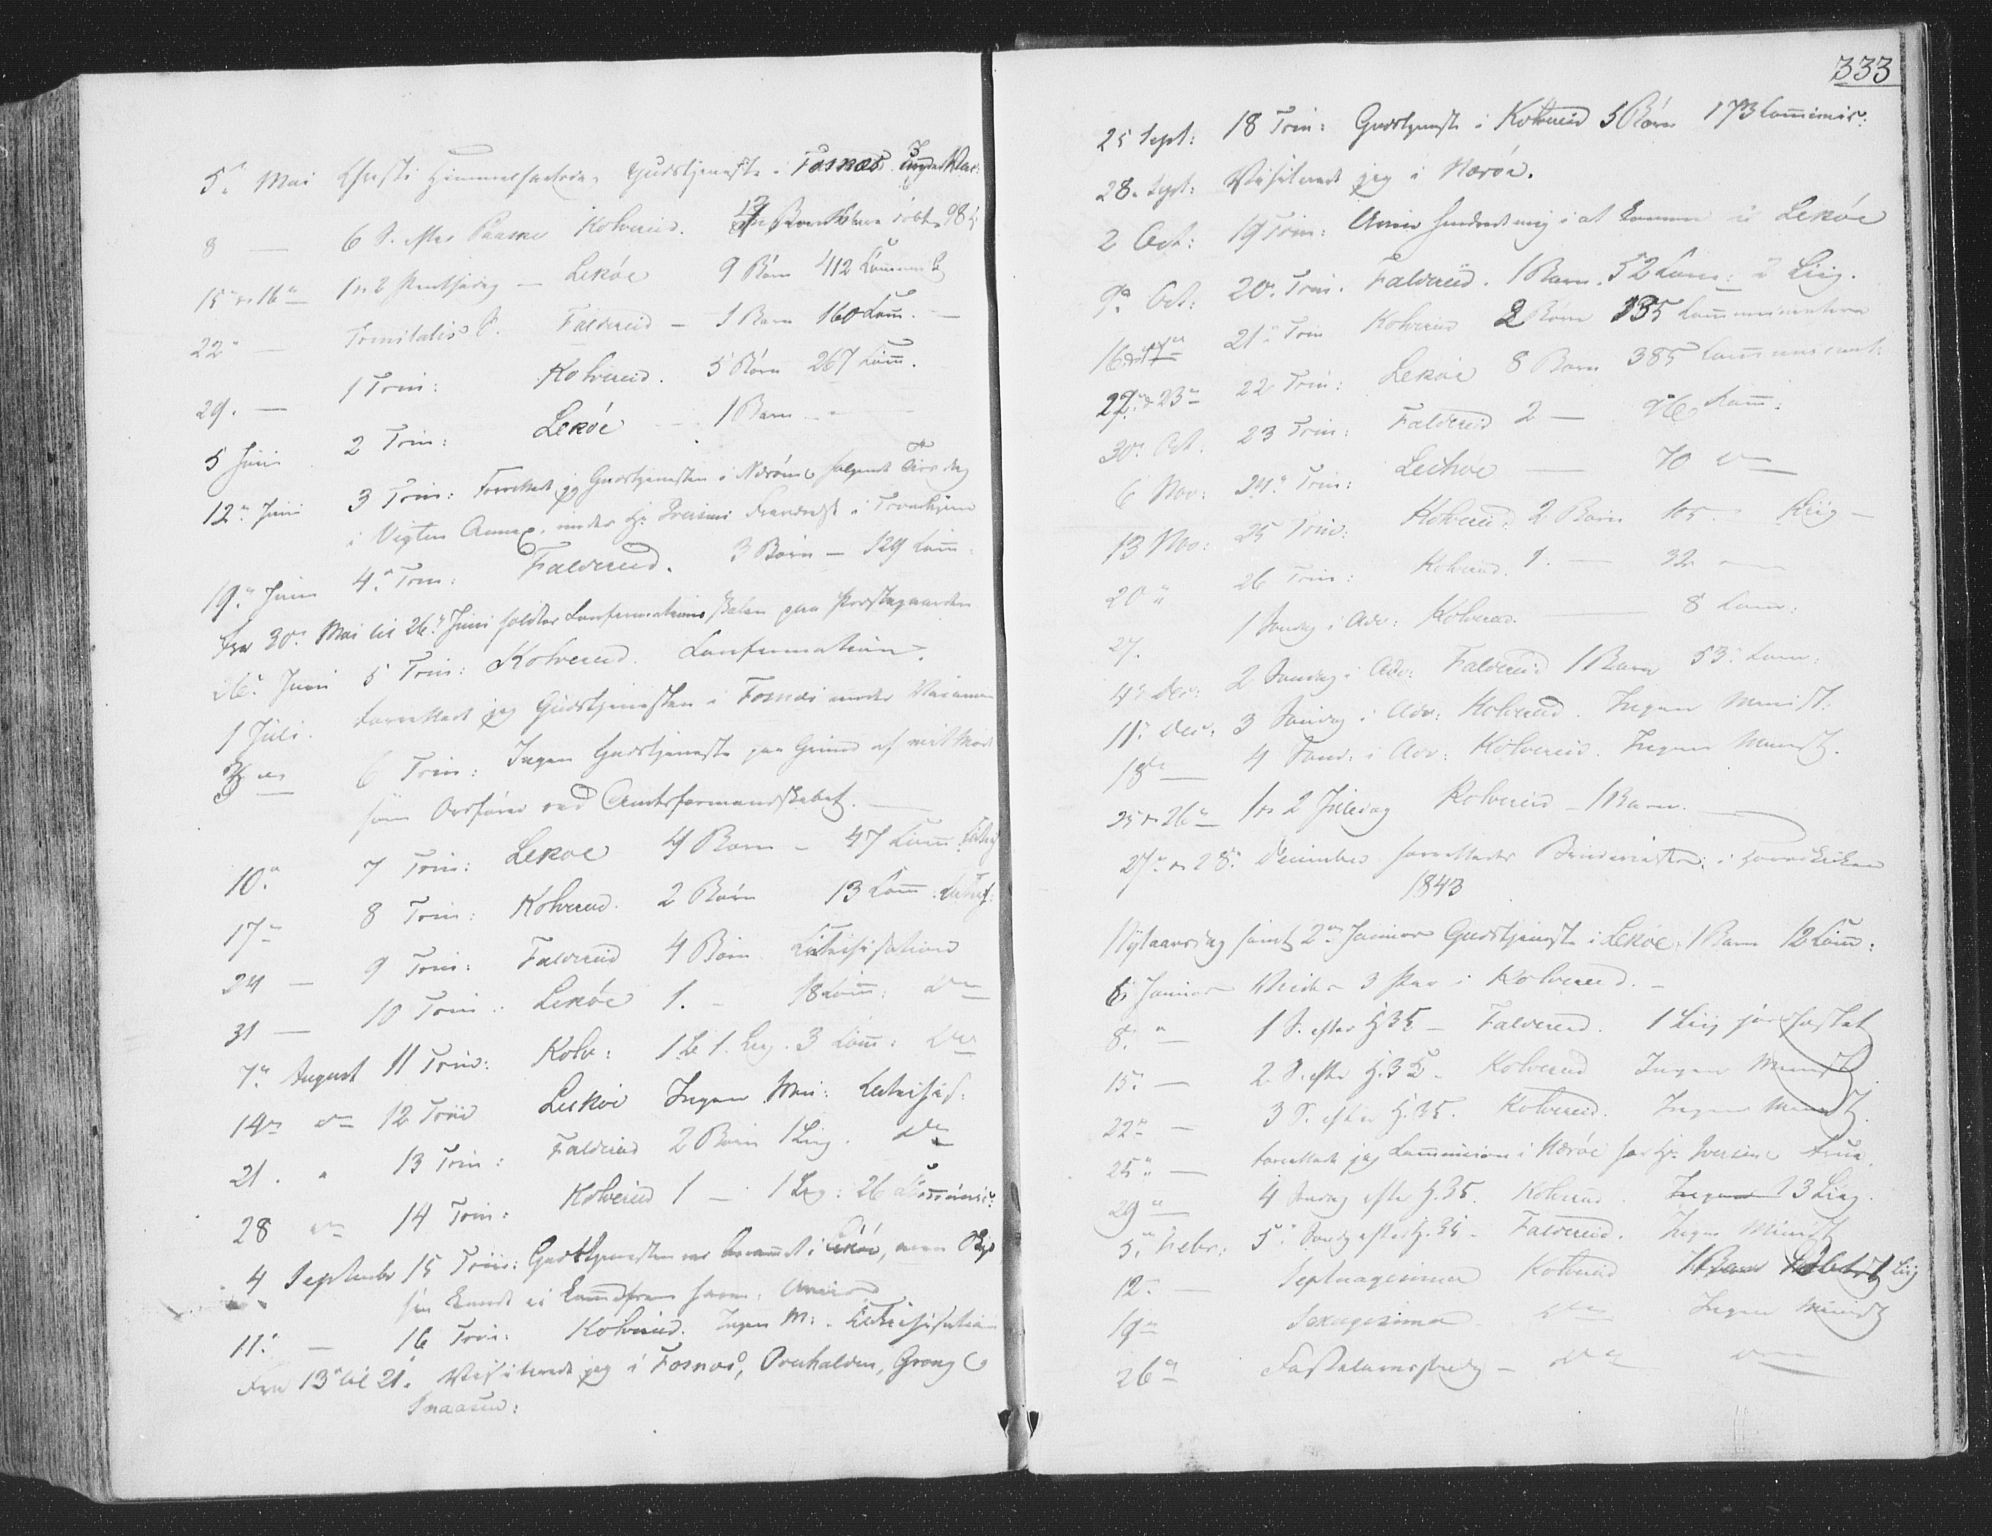 5te Mai Christi Himmelfartsdag Gudstjeneste i Fosnæs.
8 — 6 S. efter Paaske Kolvereid. Børn døbt 98
15de og 16de 1 og 2 Pintsedag — Lekøe 9 Børn 412 Comm
22de — Trinitatis S. Foldereid — 1 Barn 160 Com. —
29. — 1 Trin: Kolvereid. 5 Børn 267 Com.
5 Juni 2 Trin: Lekøe — 1 Barn — —
12te Juni 3 Trin: Forrettede jeg Gudstjenesten i Nærøe følgende Tirsdag
i Vigten Annex, under Hr Iversens Fraværelse i Trondhjem
19de Juni 4de Trin: Foldereid. 3 Børn — 129 Com.
Fra 30te Mai til 26de Juni holdtes Confirmations Skolen paa Præstegaarden
26de Juni 5 Trin: Kolvereid. Confirmation.
1 Juli. Forrettede jeg Gudstjenesten i Fosnæs under
3 do 6 Trin: Ingen Gudstjeneste paa Grund af mit Møde
som Ordfører ved Amtsformandskabet. —
10de 7 Trin: Lekøe 4 Børn — 47 Com.
17de 8 Trin: Kolvereid. 2 Børn 13 Com. Catech.
24 — 9 Trin: Foldereid 4 Børn Catechisation
31 — 10 Trin: Lekøe 1. — 18 Com: do
7de August 11 Trin: Kolv: 1 B. 1 Liig. 3 Com: do
14de do 12 Trin Lekøe Ingen Min: Catechis:
21. " 13 Trin: Foldereid 2 Børn 1 Liig. do
28 do 14 Trin: Kolvereid 1 — 1 Liig: 26 Communic:
4 September 15 Trin: Gudstjenesten var berammet i Lekøe, men
kunde ei komme frem
11te — 16 Trin: Kolvereid. Ingen M: Catechisation
Fra 13de til 21. Visiterede jeg i Fosnæs, Overhalden, Grong &
Snaasen:
333
25 Sept: 18 Trin: Gudstjeneste i Kolvereid 5 Børn 173 Communic:
28de Sept: Visiterede jeg i Nærøe.
2 Oct: 19 Trin: Uveir hindrede mig i at komme til Lekøe
9de Oct: 20de Trin. Foldereid. 1 Barn. 52 Com: 2 Liig.
16de 21de Trin Kolvereid 2 Børn 135 Communicantere
22de & 23de 22 Trin: Lekøe 8 Børn 385 Communicant:
30te Oct. 23 Trin: Foldereid 2 — 96 Com:
6 Nov: 24de Trin: Lekøe — 70 do
13 Nov: 25 Trin: Kolvereid: 2 Børn 105. — Liig —
20 " 26 Trin: Kolvereid. 1. — 32 —
27. 1 Søndag i Adv: Kolvereid. — 8 Com:
4de Dec: 2 Søndag i Adv: Foldereid 1 Barn 53 Com:
11te Dec: 3 Søndag i Adv: Kolvereid. Ingen Minist:
18de — 4 Sønd: i Adv: Kolvereid. Ingen Minist.
25 og 26de 1 og 2 Juledag Kolvereid — 1 Barn. —
27de og 28de December forrettedes i Hovedkirken
1843
Nytaarsdag samt 2den Januar Gudstjeneste i Lekøe. 1 Barn 12 Com:
6 Januar Viedes 3 Par i Kolvereid. —
8. " 1 S. efter H.3K — Foldereid. 1 Liig jordfæstet
15. — 2 S. efter H.3K — Kolvereid Ingen Minist.
22de — 3 S. efter H.3K. Kolvereid. Ingen Minist.
25de — forrettede jeg Communion i Nærøe for Hr Iversens Frue.
29de — 4 Søndag efter H.3K. Kolvereid. Ingen 3 Liig.
5te Febr: 5te Søndag efter H.3K — Foldereid. Ingen Minist
12te — Septuagesima Kolvereid 1 Barn Liig
19de Sexagesima do Ingen Minist
26de Fastelavnssøndag — do do